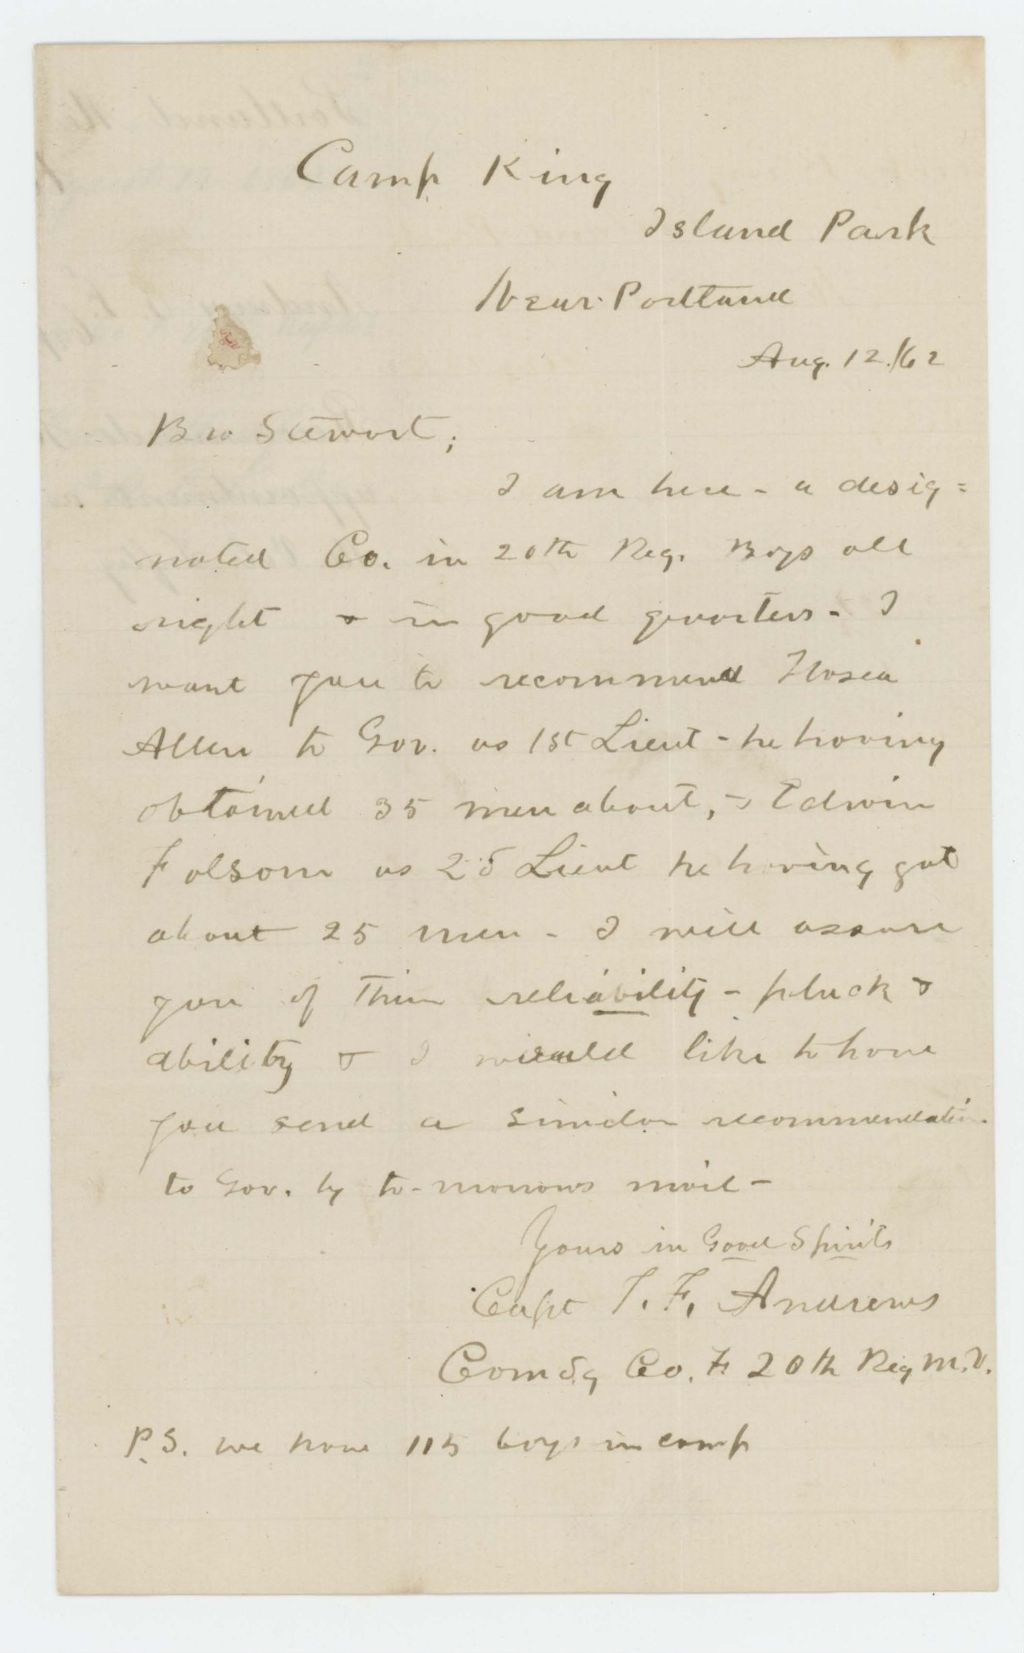 Camp King
Island Park
Near Portland
Aug. 12. /62
Bro Stewart;
I am here - a desig=
nated Co. in 20th Reg. Boys all
right & in good quarters - I
want you to recommend Hosea
Allen to Gov. as 1st Lieut - he having
obtained 35 men about, & Edwin
Folsom as 2d Lieut he having got
about 25 men - I will assure
you of their reliability - pluck &
ability & I would like to have
you send a similar recommendation
to Gov. by to-morrows mail -
Yours in Good Spirits
Capt T. F. Andrews
Comdg Co. F. 20th Reg M.V.
P.S. we have 115 boys in camp